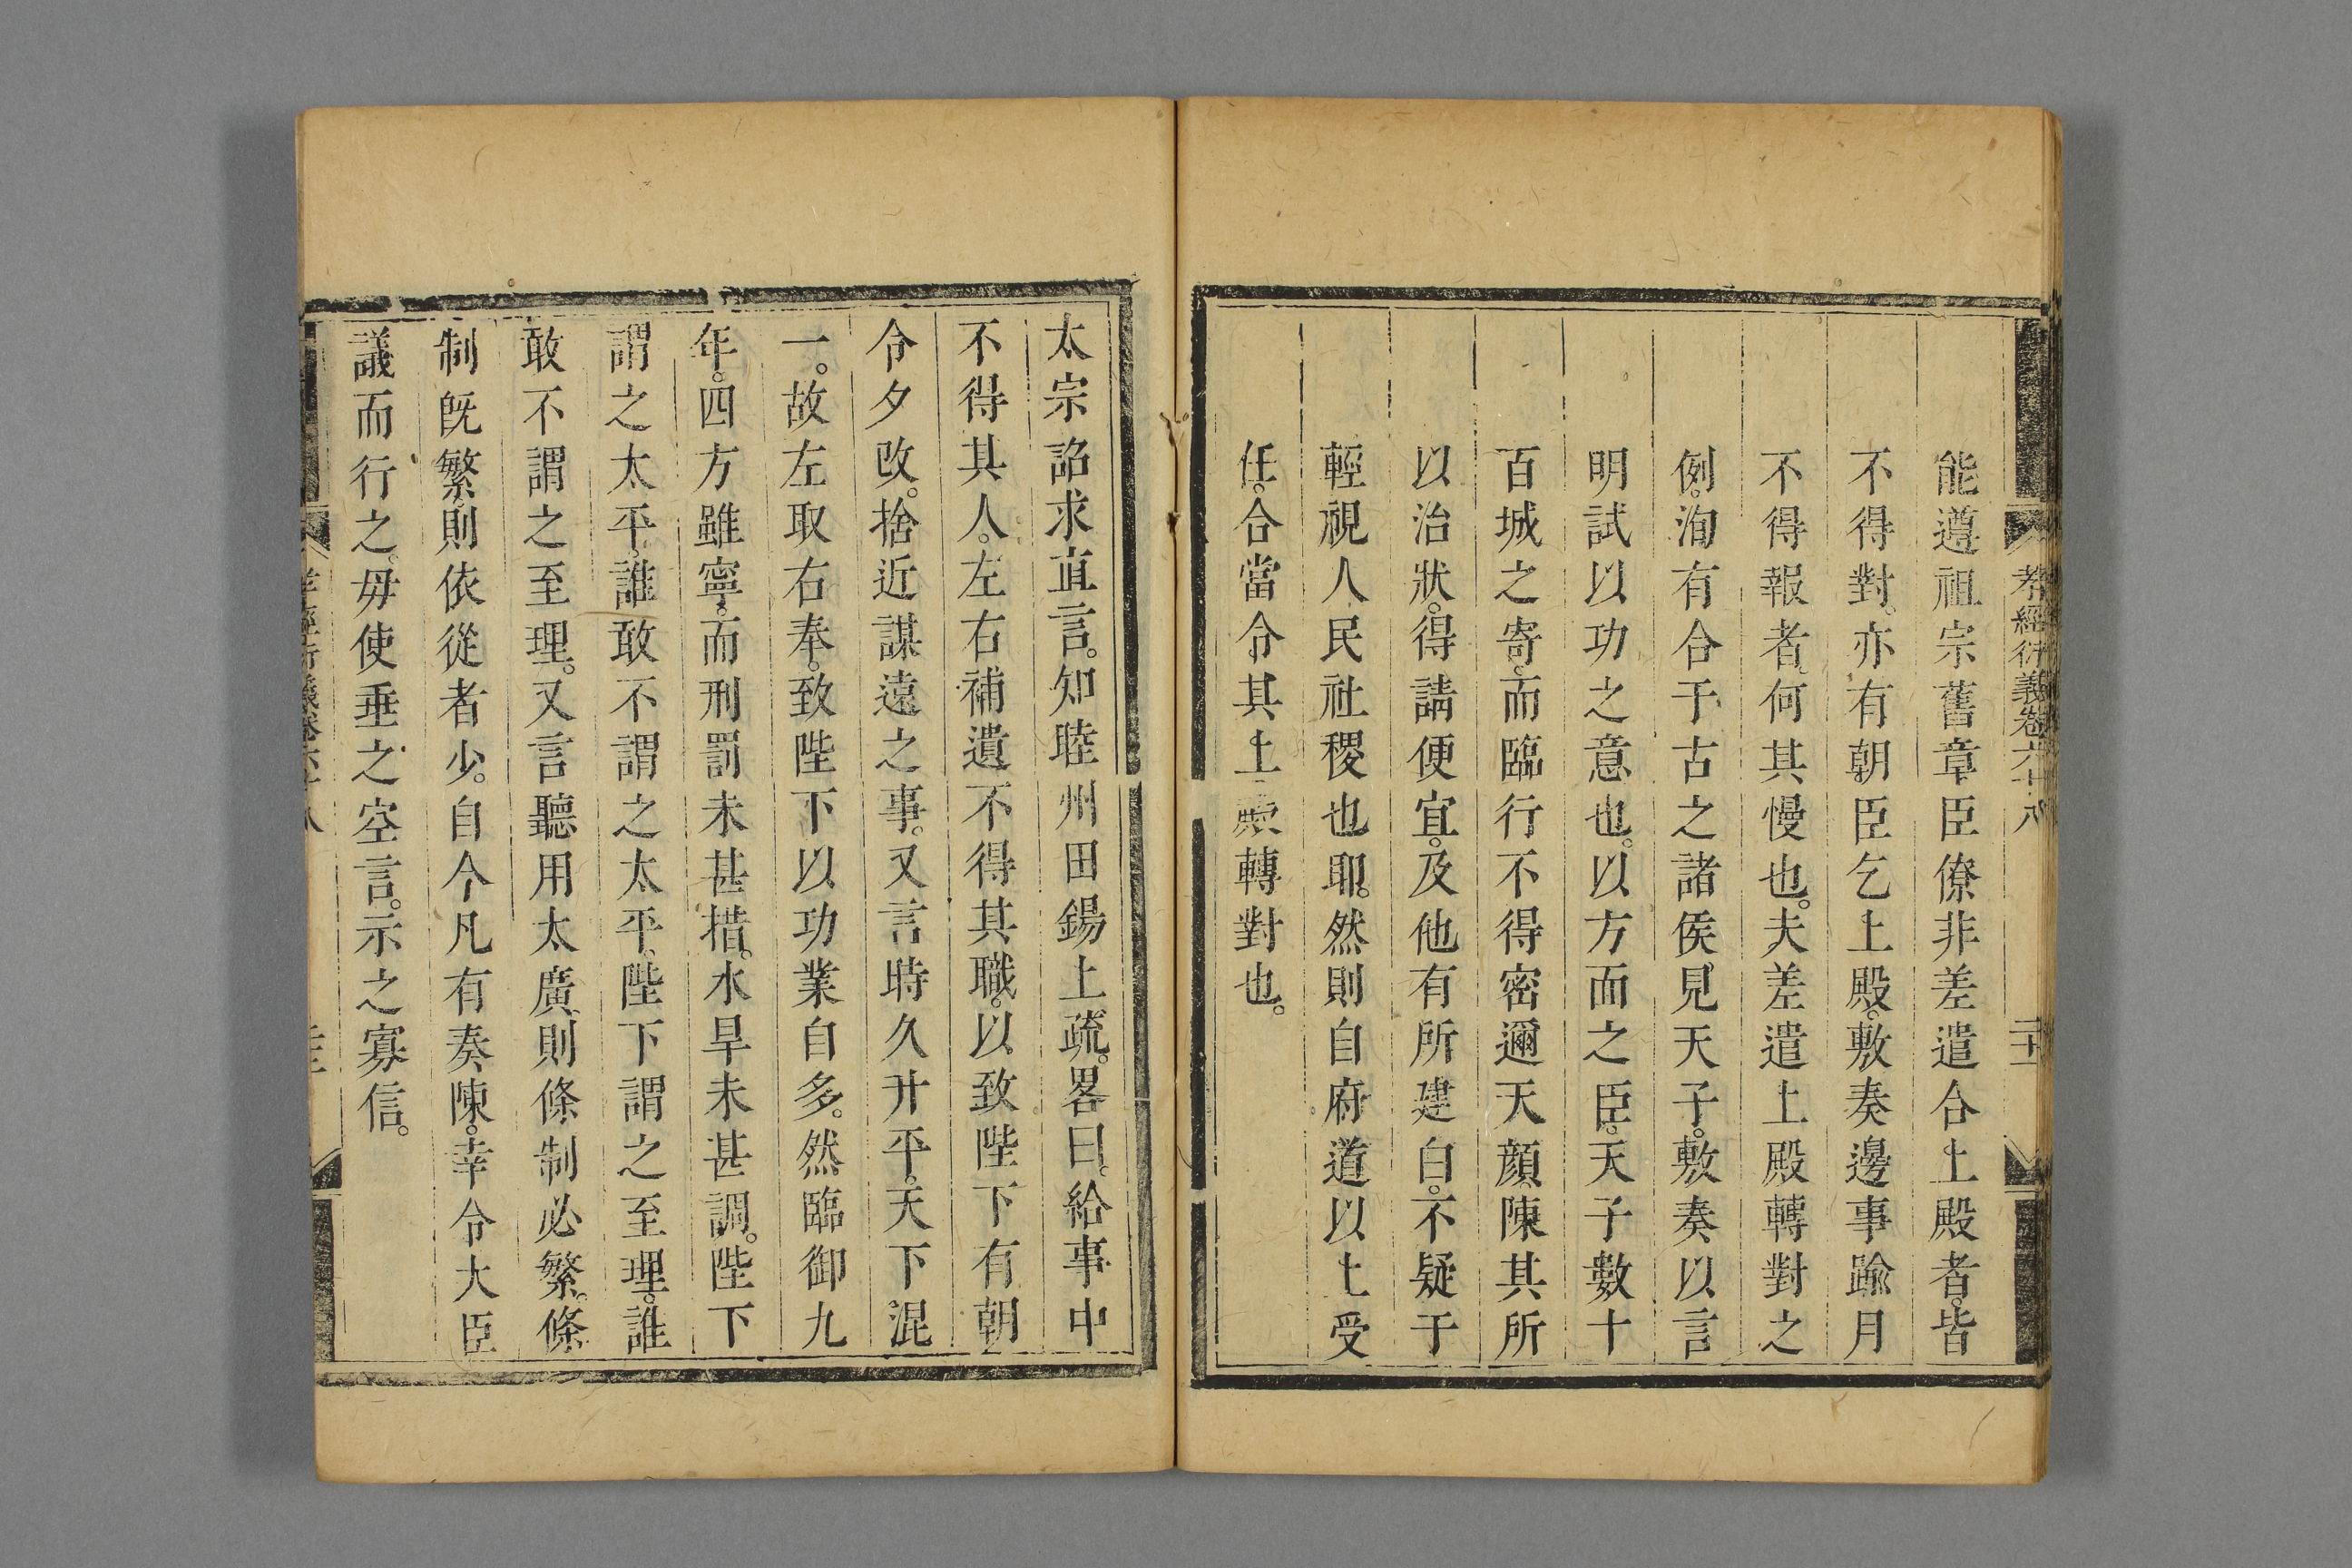 孝經衍義卷六十八
能遵祖宗舊章臣僚非差遣合上殿者。皆
不得對。亦有朝臣乞上殿。敷奏邊事踰月
不得報者。何其慢也。夫差遣上殿轉對之
例。洵有合于古之諸侯見天子。敷奏以言
明試以功之意也。以方面之臣。天子數十
百城之寄。而臨行不得密邇天顔。陳其所
以治狀。得請便宜。及他有所建白。不疑于
輕視人民社稷也耶。然則自府道以上受
任。合當令其上殿轉對也。
太宗詔求直言。知睦州田錫上疏。畧曰。給事中
不得其人。左右補遺不得其職。以致陛下有朝
令夕改。捨近謀遠之事。又言時久升平。天下混
一。故左取右奉。致陛下以功業自多。然臨御九
年。四方雖寧。而刑罰未甚措。水旱未甚調。陛下
謂之太平。誰敢不謂之太平。陛下謂之至理。誰
敢不謂之至理。又言聽用太廣。則條制必繁。條
制旣繁。則依從者少。自今凡有奏陳。幸令大臣
議而行之。毋使垂之空言。示之寡信。
孝經衍義卷六十八